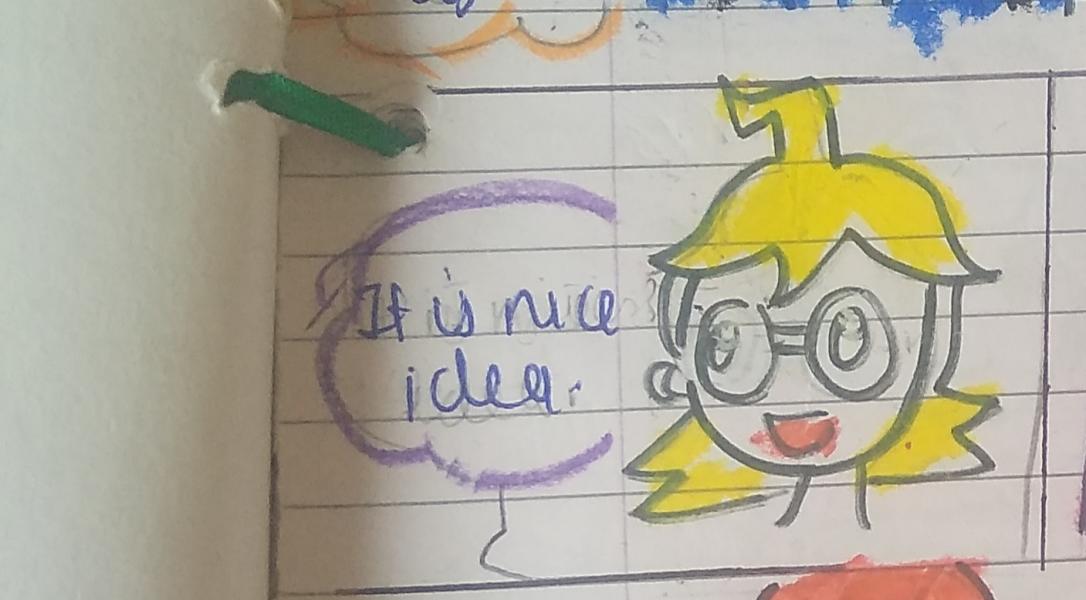 It is nice
idea.